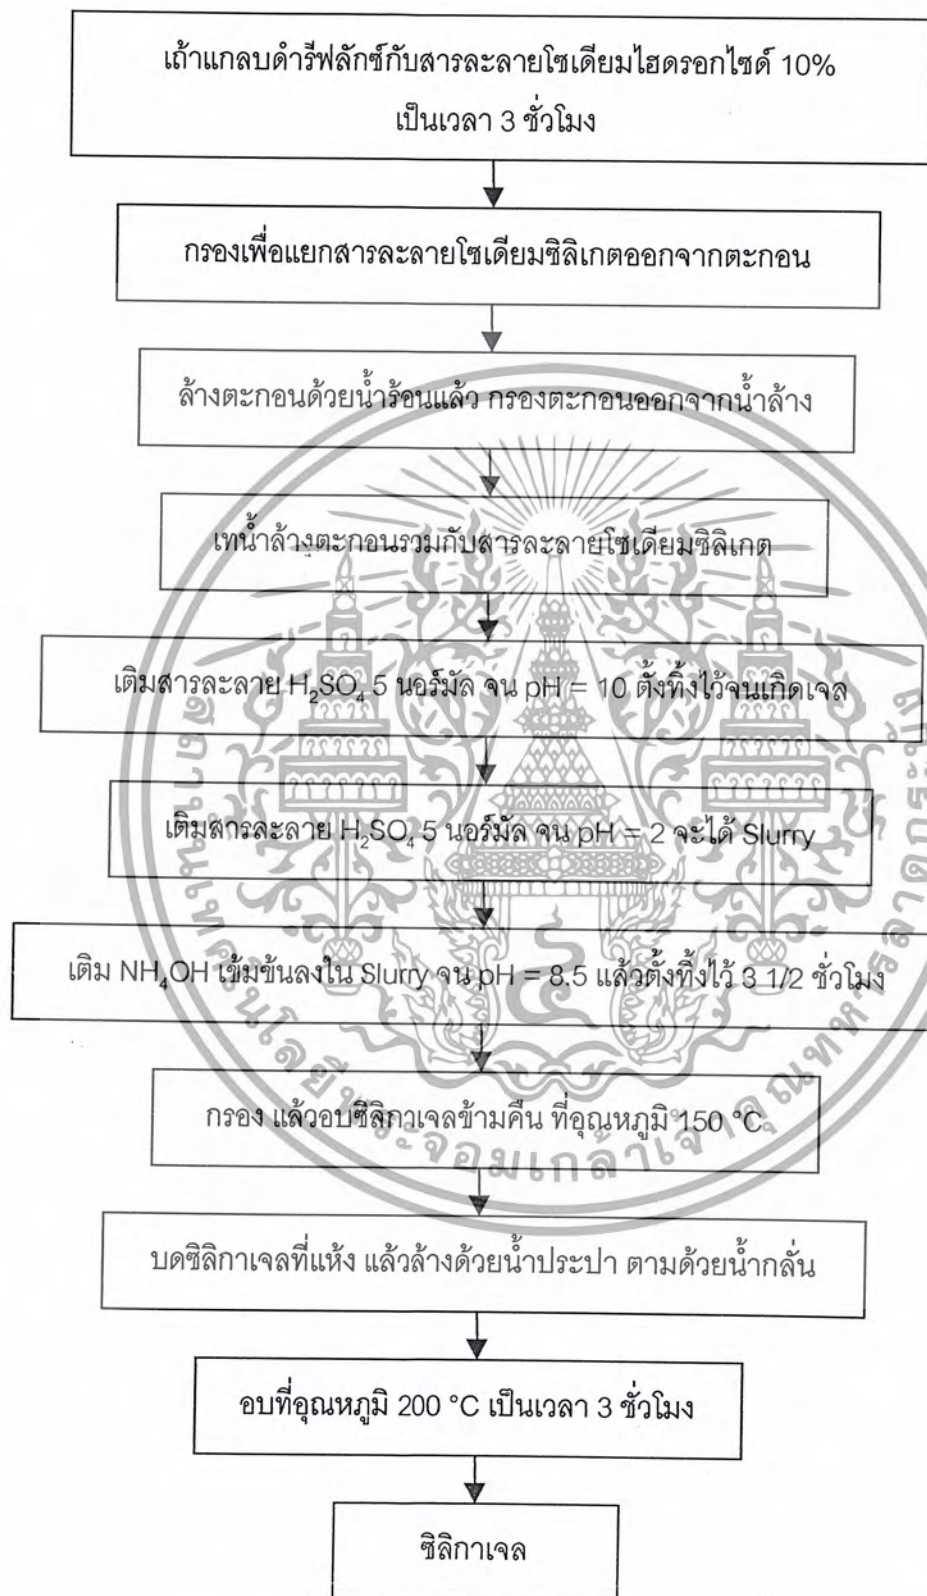 เถ้าแกลบดำรีฟลักซ์กับสารละลายโซเดียมไฮดรอกไซด์ 10%
เป็นเวลา 3 ชั่วโมง
กรองเพื่อแยกสารละลายโซเดียมซิลิเกตออกจากตะกอน
ล้างตะกอนด้วยน้ำร้อนแล้ว กรองตะกอนออกจากน้ำล้าง
เทน้ำล้างตะกอนรวมกับสารละลายโซเดียมซิลิเกต
เติมสารละลาย H₂SO₄ 5 นอร์มัล จน pH = 10 ตั้งทิ้งไว้จนเกิดเจล
เติมสารละลาย H₂SO₄ 5 นอร์มัล จน pH = 2 จะได้ Slurry
เติม NH₄OH เข้มข้นลงใน Slurry จน pH = 8.5 แล้วตั้งทิ้งไว้ 3 1/2 ชั่วโมง
กรอง แล้วอบซิลิกาเจลข้ามคืน ที่อุณหภูมิ 150 °C
บดซิลิกาเจลที่แห้ง แล้วล้างด้วยน้ำประปา ตามด้วยน้ำกลั่น
อบที่อุณหภูมิ 200 °C เป็นเวลา 3 ชั่วโมง
ซิลิกาเจล